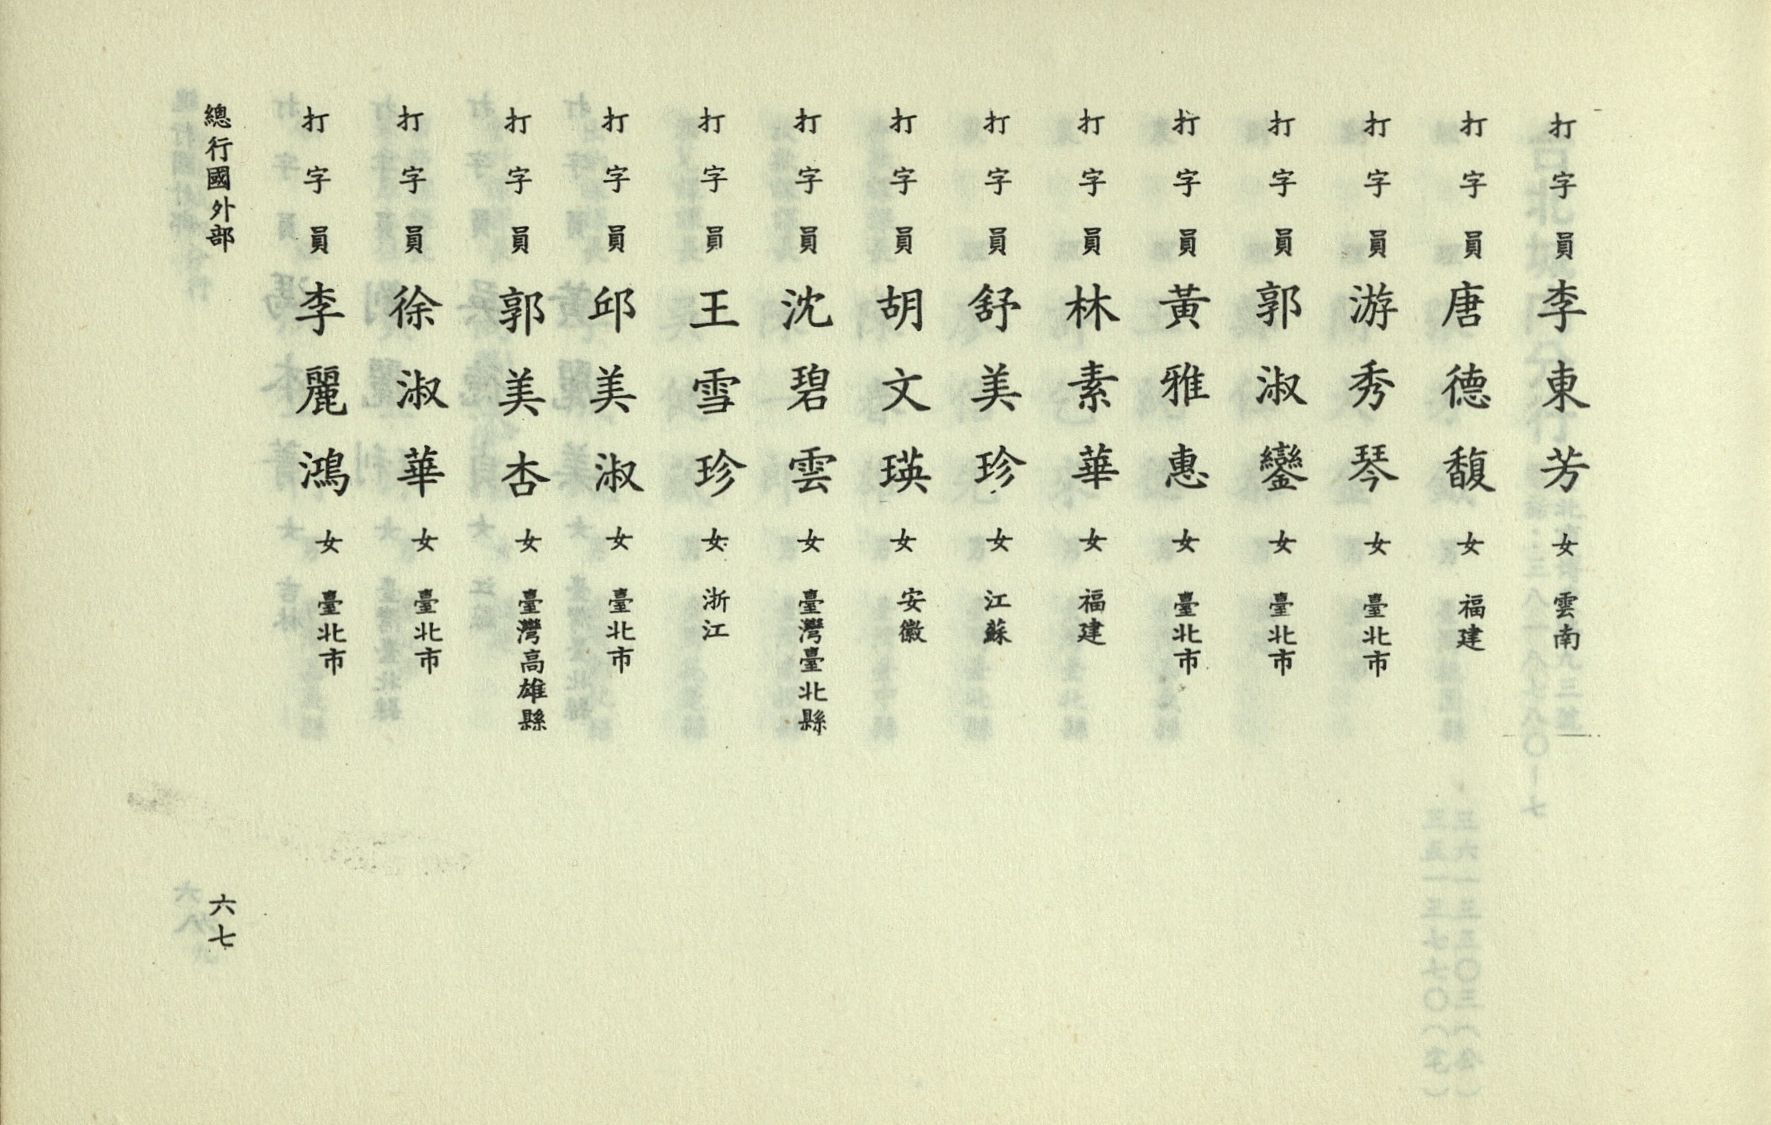 打字員李東芳女雲南
打字員唐德馥女福建
打字員游秀琴女臺北市
打字員郭淑鑾女臺北市
打字員黃雅惠女臺北市
打字員林素華女福建
打字員舒美珍女江蘇
打字員胡文瑛女安徽
打字員沈碧雲女臺灣臺北縣
打字員王雪珍女浙江
打字員邱美淑女臺北市
打字員郭美杏女臺灣高雄縣
打字員徐淑華女臺北市
打字員李麗鴻女臺北市
總行國外部
六七